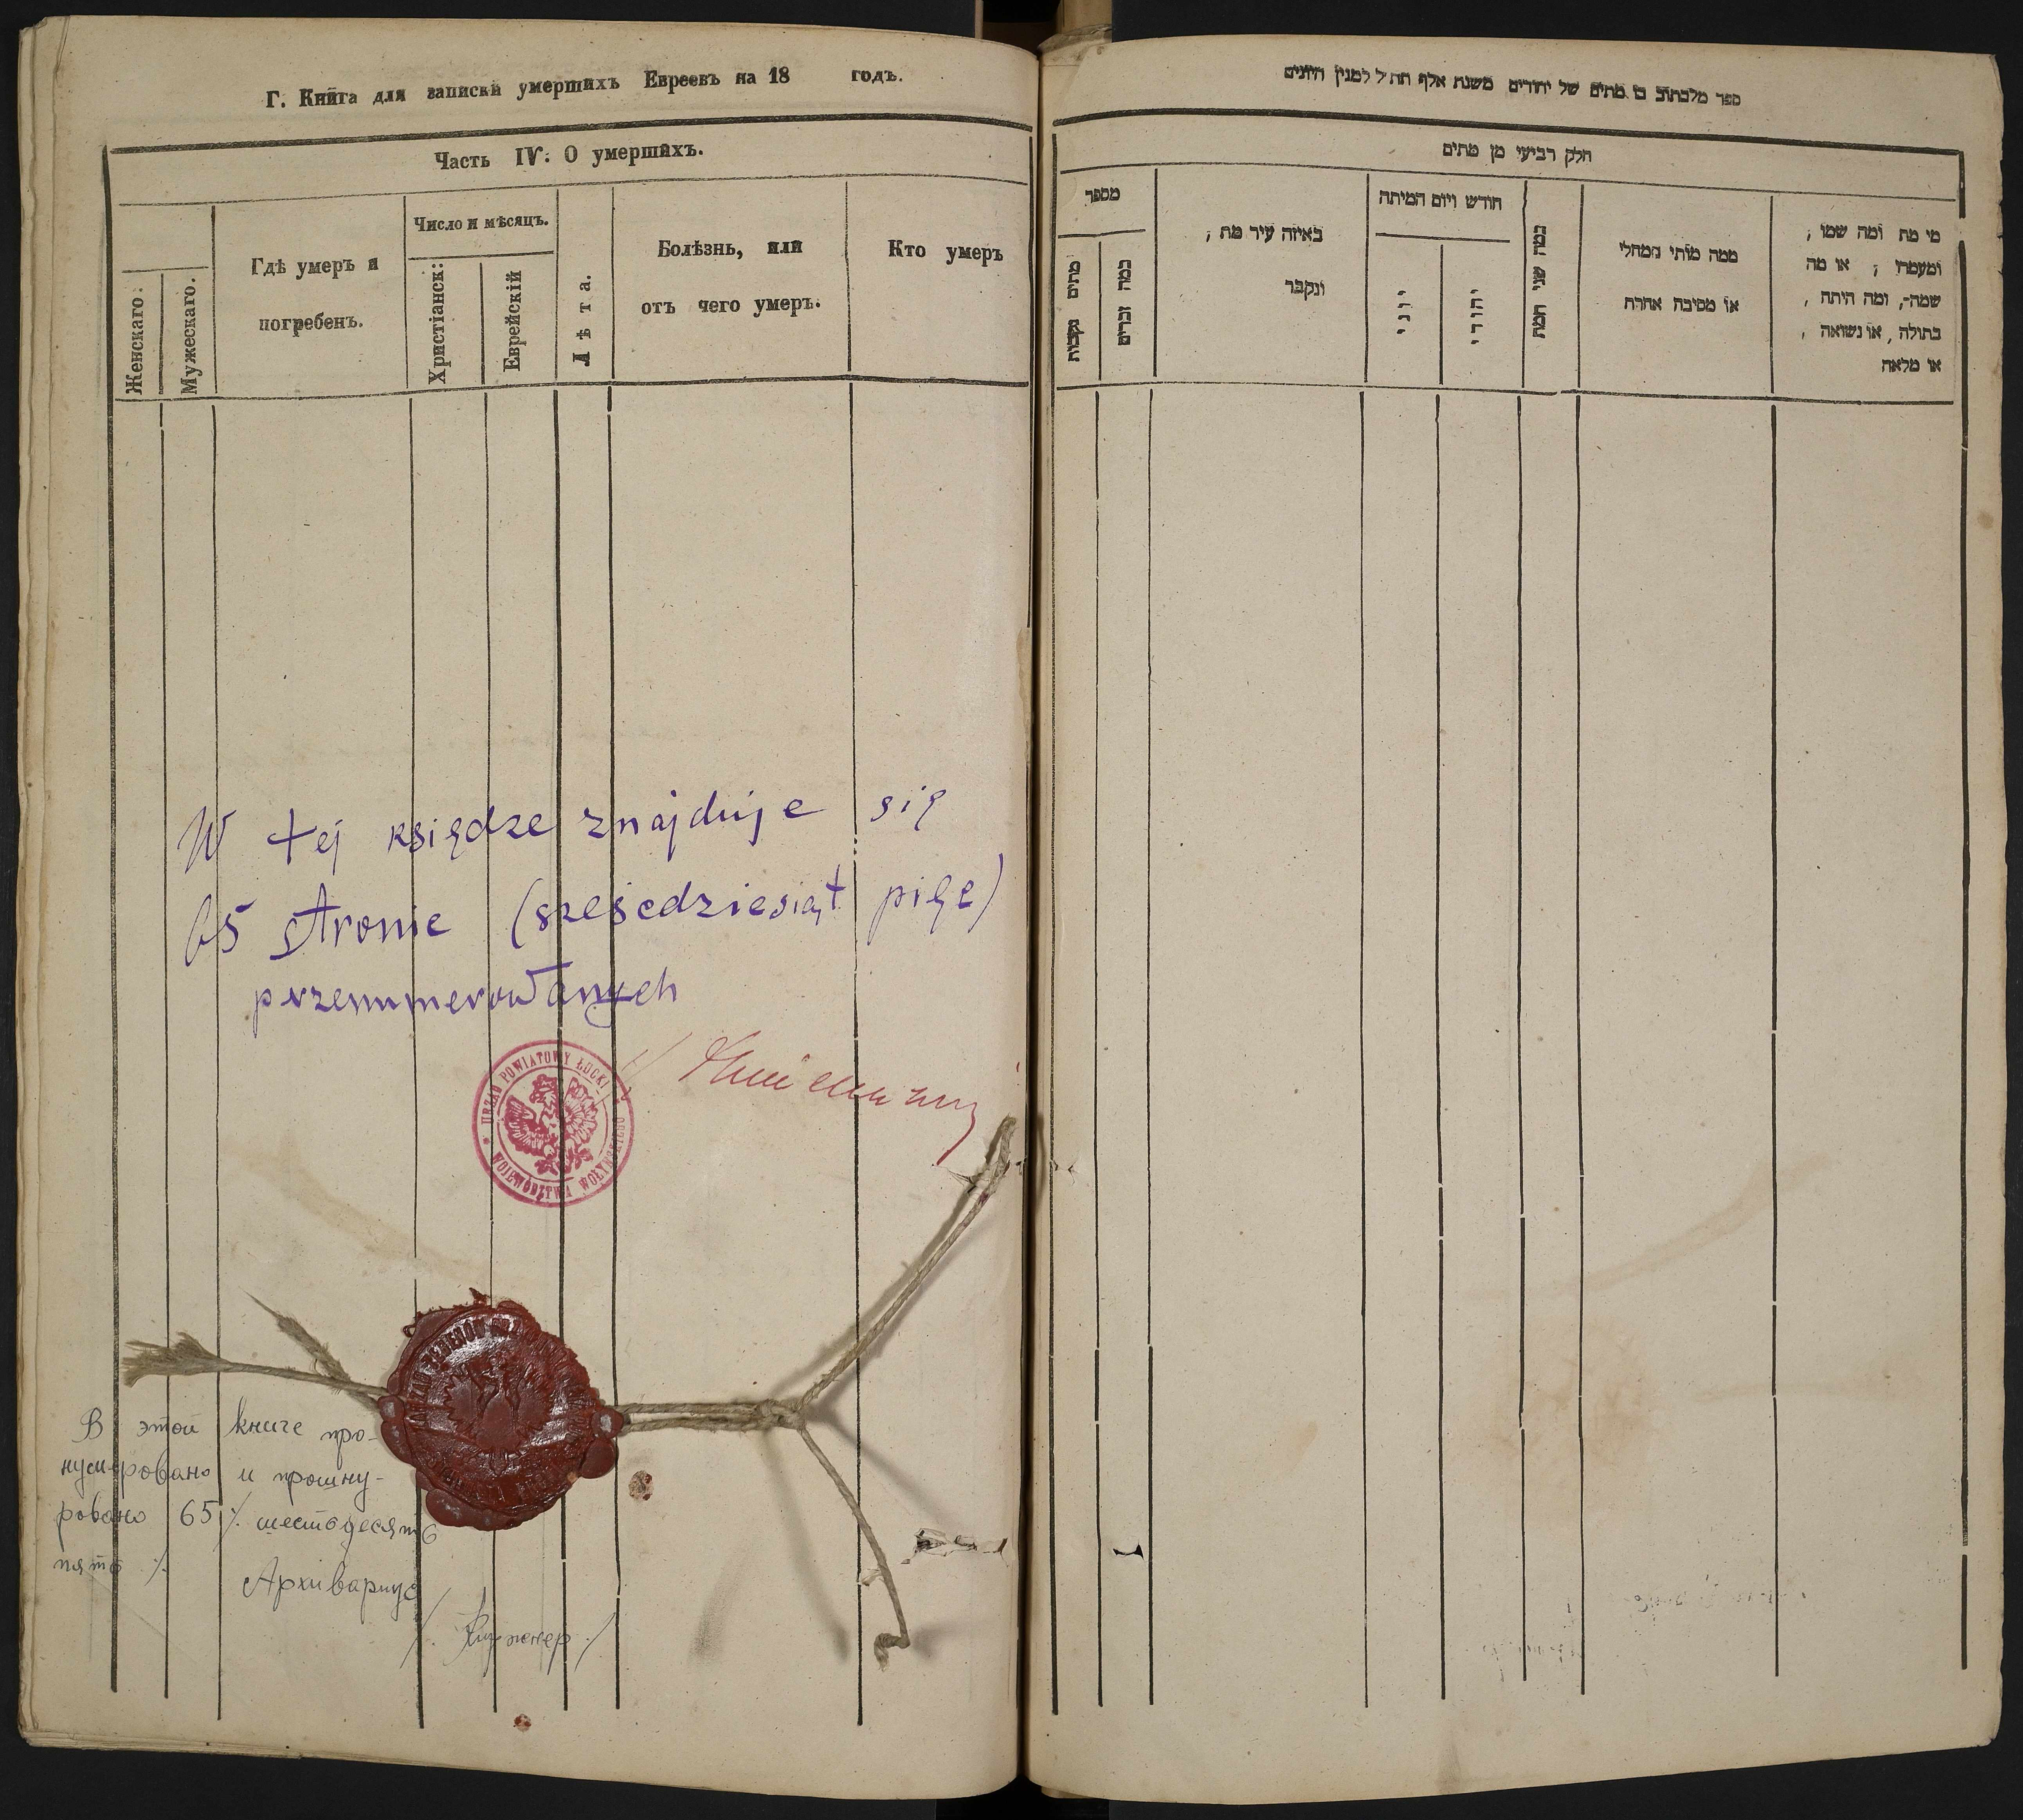 Г. Книга для записки умершихъ Евреевъ на 18 годъ.
Часть IV. О умершихъ.
Женскаго.
Мужескаго.
Гдѣ умеръ и
погребенъ.
Число и мѣсяцъ.
Христіанск:
Еврейскій
Лѣта.
Болѣзнь, или
отъ чего умеръ.
Кто умеръ
W tej księdze znajduje się
65 stronic (sześćdziesiąt pięć)
przenumerowanych
URZĄD POWIATOWY ŁUCKI
WOJEWÓDZTWA WOŁYŃSKIEGO
В этой книге про-
нумеровано и прошну-
ровано 65 /. шестьдесять
пять /.
Архивариус
ספר מלכתוב בו מתים של יהודים משנת אלף תת״ל למנין היונים
חלק רביעי מן מתים
מספר
מתים נקבות
כמה זכרים
באיזה עיר מת,
ונקבר
חודש ויום המיתה
יוני
יהודי
כמה שני המת
ממה מותו ממחלי
או מסיבה אחרת
מי מת ומה שמו,
ומעמדו; או מה
שמה, ומה היתה,
בתולה, או נשואה,
או מלאה